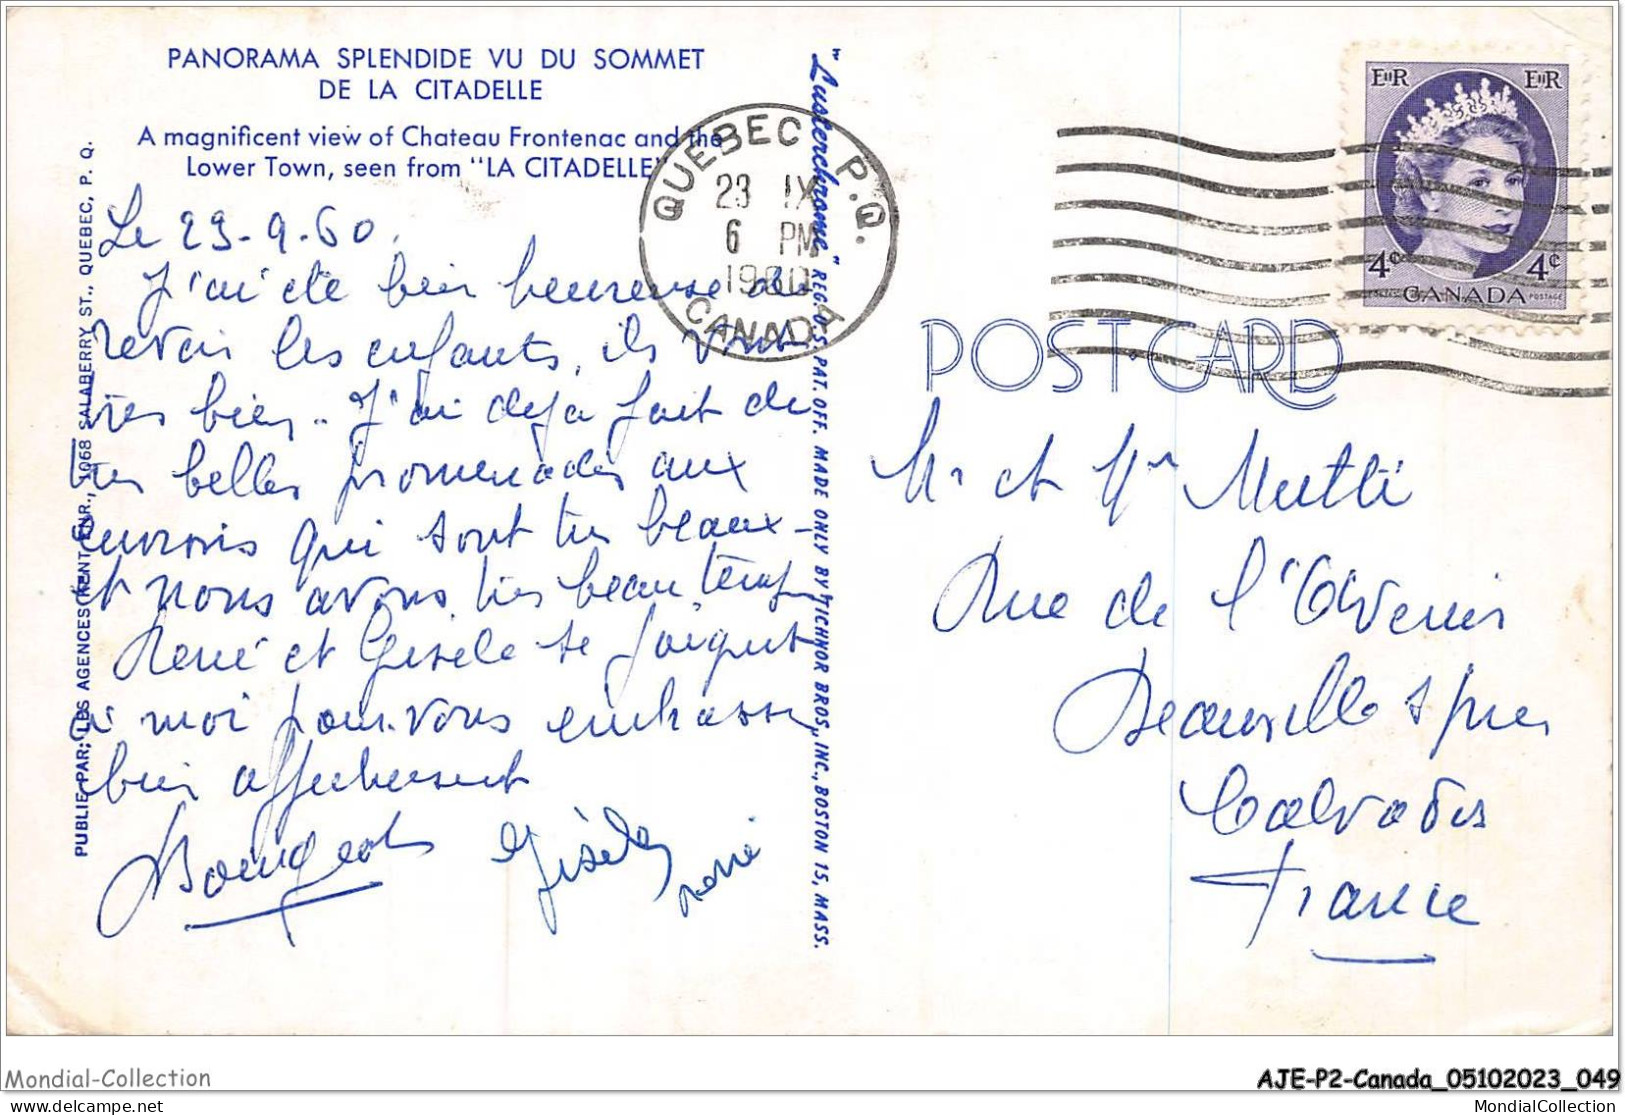 PANORAMA SPLENDIDE VU DU SOMMET
DE LA CITADELLE
A magnificent view of Chateau Frontenac and the
Lower Town, seen from "LA CITADELLE"
Le 23-9-60.
J'ai été bien heureuse de
revoir les enfants, ils vont
très bien. J'ai déjà fait de
très belles promenades aux
environs qui sont très beaux-
et nous avons très beau temps
René et Gisèle se joignent
à moi pour vous embrasser
bien affectueusement
Bourgeois
Gisèle
rené
PUBLIE PAR: LES AGENCES KENT ENR., 1068 SALABERRY ST., QUEBEC, P. Q.
"Lusterchrome" REG. U.S. PAT. OFF. MADE ONLY BY TICHNOR BROS., INC., BOSTON 15, MASS.
QUEBEC P.Q.
23 IX
6 PM
1960
CANADA
EIIR EIIR
4¢ 4¢
CANADA
POSTES POSTAGE
POST CARD
Mr et Me
Rue de l'Avenir
Calvados
France
Mondial-Collection
AJE-P2-Canada_05102023_049
delcampe.net
MondialCollection